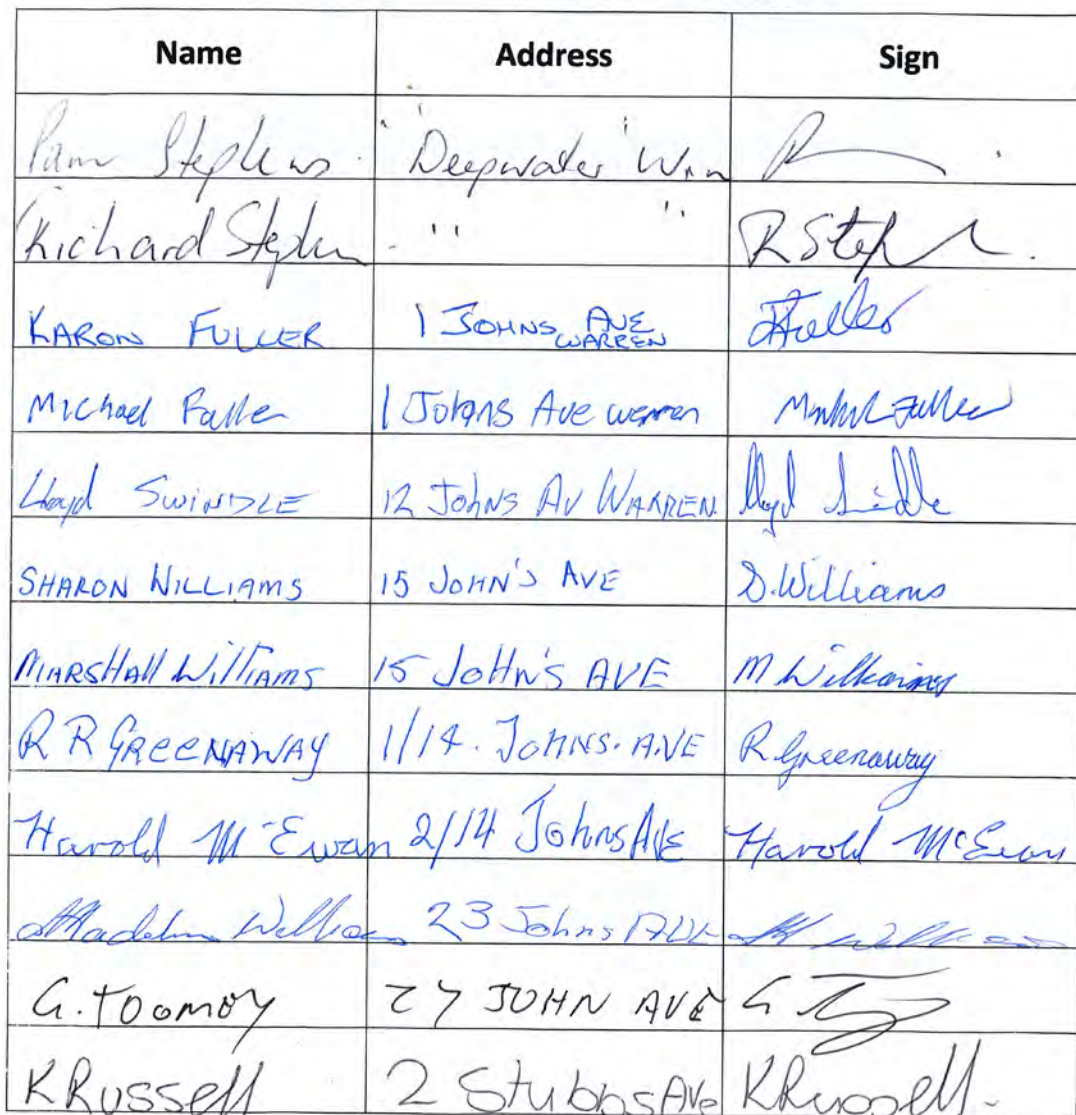 Name Address Sign
Pam Stephens. "Deepwater" Wrn
Richard Stephen " " R Steph
KARON FULLER 1 JOHNS AVE WARREN KFuller
Michael Fuller 1 Johns Ave warren Michael Fuller
Lloyd SWINDLE 12 JOHNS AV WARREN. Lloyd Swindle
SHARON WILLIAMS 15 JOHN'S AVE S.Williams
MARSHAll WilliAMS 15 JoHn's AVE M Williams
R R GREENAWAY 1/14. JOHNS. AVE R.Greenaway
Harold McEwan 2/14 Johns AVE Harold McEwan
Madeline Williams 23 Johns AVE M Williams
G. TOOMEY 27 JOHN AVE G
K Russell 2 Stubbs Ave K Russell